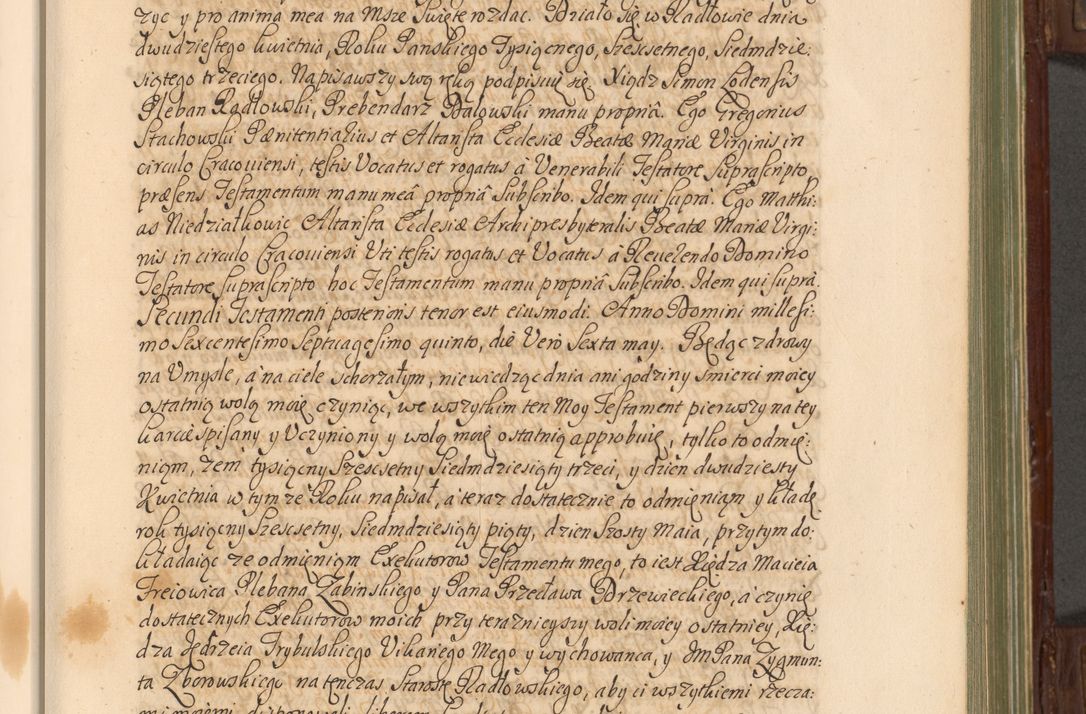 zyc y pro anima mea na Msze Swięte rozdac. Działo się w Radłowie dnia
dwudziestego kwietnia, Roku Panskiego Tysiącnego, szescsetnego, Siedmdzie:
siątego trzeciego. Napisawszy swą ręką podpisuię się Xiądz Simon Lodensis
Pleban Radłowski, Prebendarz Bałowski manu propriâ. Ego Gregorius
Stachowski Pænitentiarius et Altarista Ecclesiæ Beatæ Mariæ Virginis in
circulo Cracoviensi, testis Vocatus et rogatus à Venerabili Testatore Suprascripto,
præsens Testamentum manu meâ propriâ Subscribo. Idem qui suprà. Ego Matthi:
as Niedziałkowic Altarista Ecclesiæ Archipresbyteralis Beatæ Mariæ Virgi:
nis in circulo Cracoviensi Uti testis rogatus et Vocatus à Reuerendo Domino
Testatore suprascripto hoc Testamentum manu propriâ Subscribo. Idem qui suprà.
Secundi Testamenti posterioris tenor est eiusmodi. Anno Domini millesi:
mo Sexcentesimo Septuagesimo quinto, die Verò Sexta may. Będąc zdrowy
na Umysle, a na ciele schorzałym, niewiedząc dnia ani godziny smierci moiey
ostatnią wolą moię czyniąc, we wszytkim ten Moy Testament pierwszy na tey
karcie spisany y Uczyniony y wolą moię ostatnią approbuię, tylko to odmię:
niąm, żem tysiącny szescsetny Siedmdziesiąty trzeci, y dzien dwudziesty
Kwietnia w tym że Roku napisał, a teraz dostatecznie to odmięniąm y kładę
rok tysiącny szescsetny, Siedmdziesiąty piąty, dzien szosty Maia, przytym do:
kładaiąc że odmieniąm Exekutorow Testamentu mego, to iest Xiędza Macieia
Freiowica Plebana Zabinskiego y Pana Przecława Brzewieckiego, a czynię
dostatecznych Exekutorow moich przy teraznieyszy woli moiey ostatniey, Xię:
dza Jędrzeia Trybulskiego Vikariego Mego y wychowanca, y JM Pana Zygmun:
ta Zborowskiego na tenczas Starostę Radłowskiego, aby ci wszytkiemi rzecza: